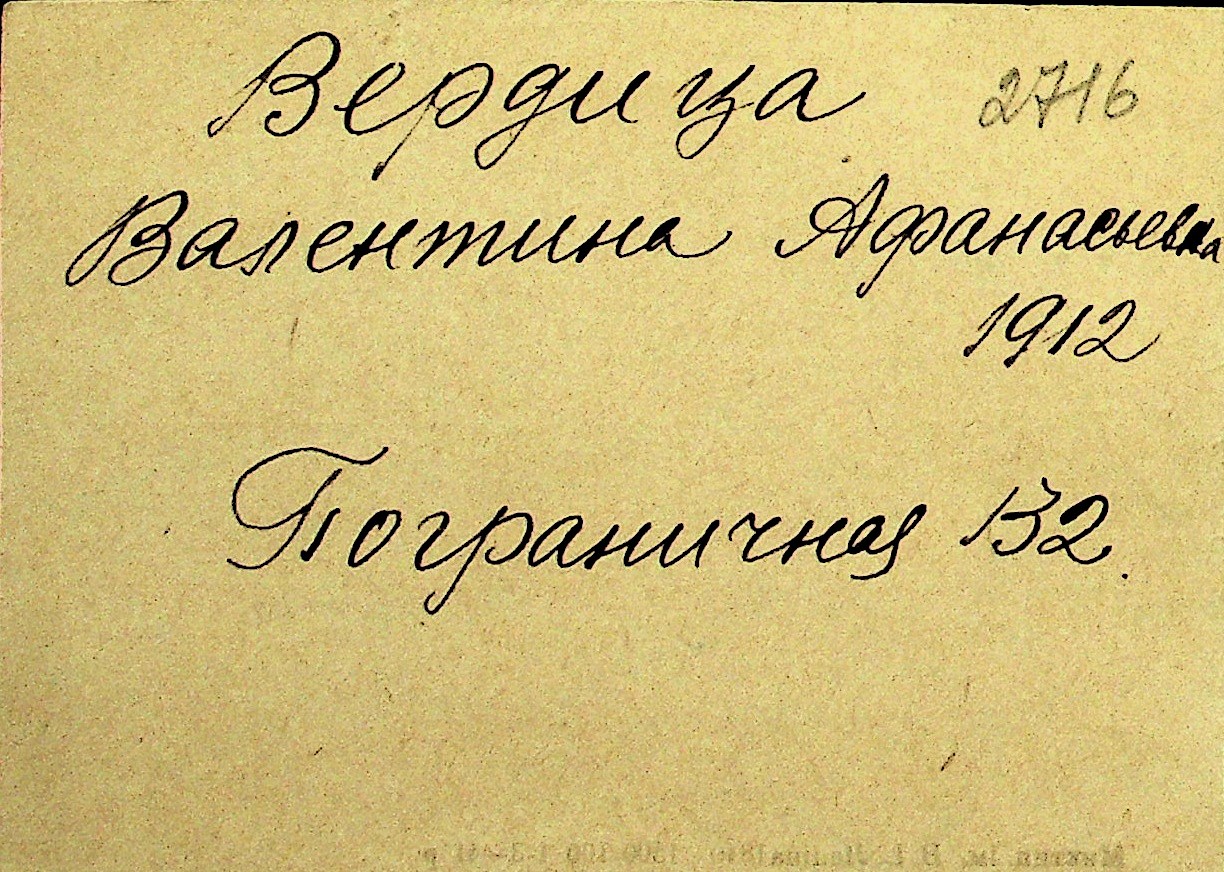 Вердица 2716
Валентина Афанасьевна
1912
Пограничная 132.